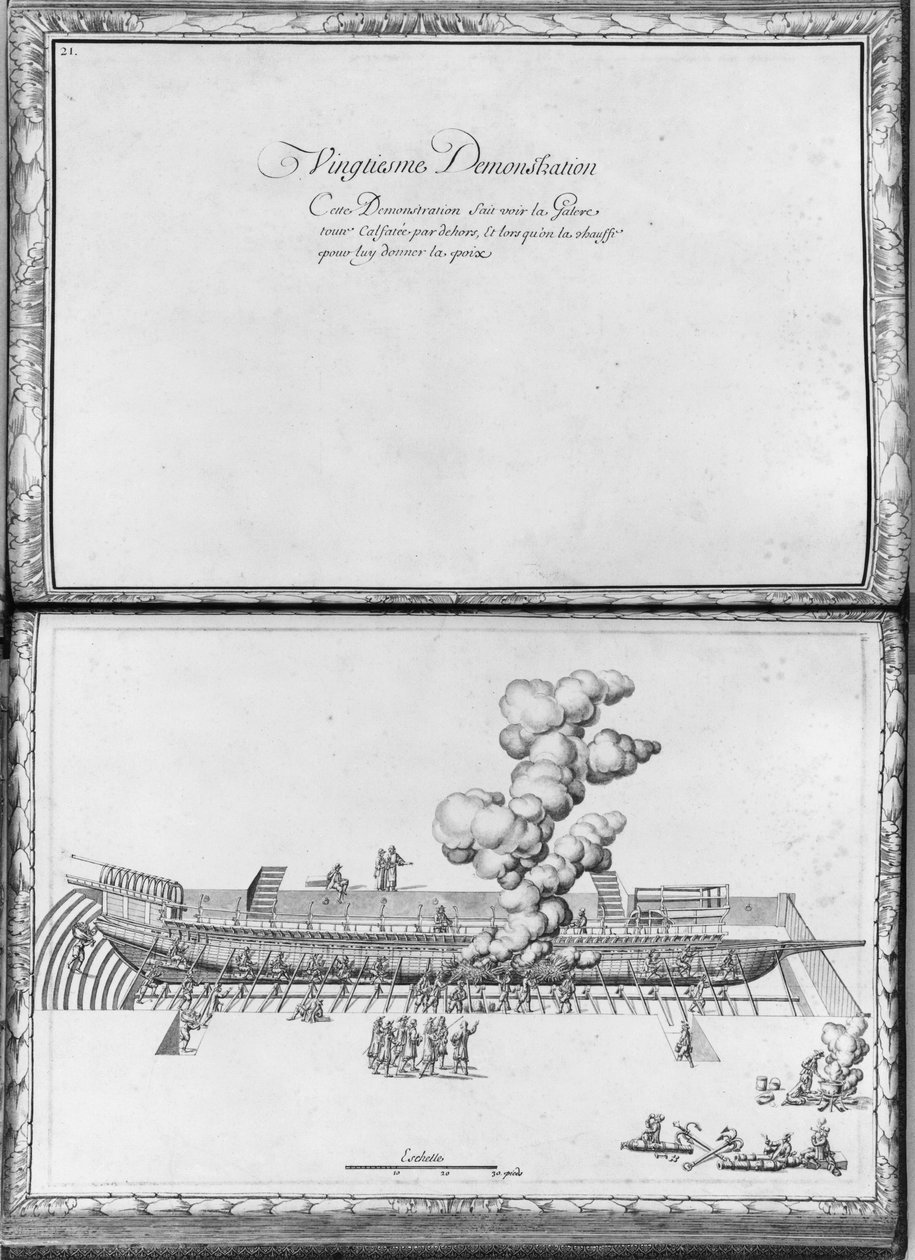 21.
Vingtiesme Demonstration
Cette Demonstration fait voir la Galere
toute Calfatée par dehors, Et lors qu'on la chauffe
pour luy donner la poix
Eschelle
10 20 30. pieds